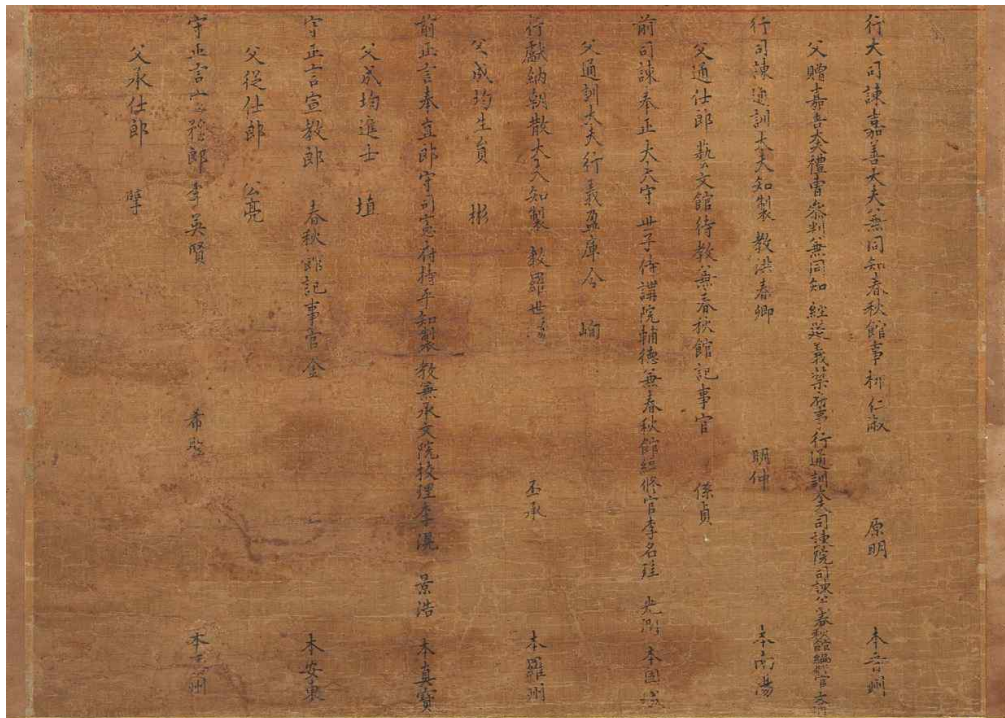 行大司諫嘉善大夫兼同知春秋館事柳仁淑 原明 本晉州
父贈嘉善大夫禮曹參判兼同知 經筵義禁府事行通訓大夫司諫院司諫兼春秋館編修官
行司諫通訓大夫知製 教洪春卿 明仲 本南陽
父通仕郎 藝文館待教兼春秋館記事官 係貞
前司諫奉正大夫守 世子侍講院輔德兼春秋館編修官李名珪 光潤 本固城
父通訓大夫行義盈庫令 峋
行獻納朝散大夫知製 教羅世纘 丕承 本羅州
父成均生員 彬
前正言奉直郎守司憲府持平知製 教兼承文院校理李滉 景浩 本真寶
父成均進士 埴
守正言宣教郎 春秋館記事官金 本安東
父從仕郎 公亮
守正言宣務郎李英賢 希聖 本 州
父承仕郎 孳